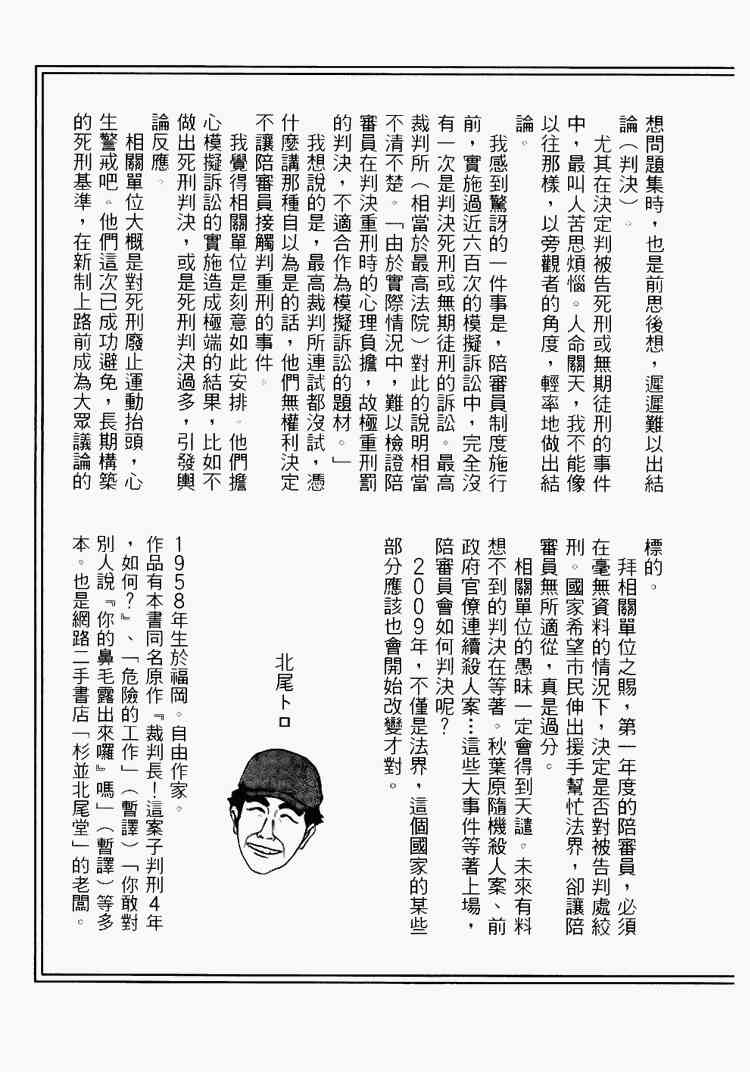 想問題集時，也是前思後想，遲遲難以出結
論（判決）。
尤其在決定判被告死刑或無期徒刑的事件
中，最叫人苦思煩惱。人命關天，我不能像
以往那樣，以旁觀者的角度，輕率地做出結
論。
我感到驚訝的一件事是，陪審員制度施行
前，實施過近六百次的模擬訴訟中，完全沒
有一次是判決死刑或無期徒刑的訴訟。最高
裁判所（相當於最高法院）對此的說明相當
不清不楚。「由於實際情況中，難以檢證陪
審員在判決重刑時的心理負擔，故極重刑罰
的判決，不適合作為模擬訴訟的題材。」
我想說的是，最高裁判所連試都沒試，憑
什麼講那種自以為是的話，他們無權利決定
不讓陪審員接觸判重刑的事件。
我覺得相關單位是刻意如此安排。他們擔
心模擬訴訟的實施造成極端的結果，比如不
做出死刑判決，或是死刑判決過多，引發輿
論反應。
相關單位大概是對死刑廢止運動抬頭，心
生警戒吧。他們這次已成功避免，長期構築
的死刑基準，在新制上路前成為大眾議論的
標的。
拜相關單位之賜，第一年度的陪審員，必須
在毫無資料的情況下，決定是否對被告判處絞
刑。國家希望市民伸出援手幫忙法界，卻讓陪
審員無所適從，真是過分。
相關單位的愚昧一定會得到天譴。未來有料
想不到的判決在等著。秋葉原隨機殺人案、前
政府官僚連續殺人案…這些大事件等著上場，
陪審員會如何判決呢？
2009年，不僅是法界，這個國家的某些
部分應該也會開始改變才對。
北尾トロ
1958年生於福岡。自由作家。
作品有本書同名原作『裁判長！這案子判刑4年
，如何？』、「危險的工作」（暫譯）「你敢對
別人說『你的鼻毛露出來囉』嗎」（暫譯）等多
本。也是網路二手書店「杉並北尾堂」的老闆。